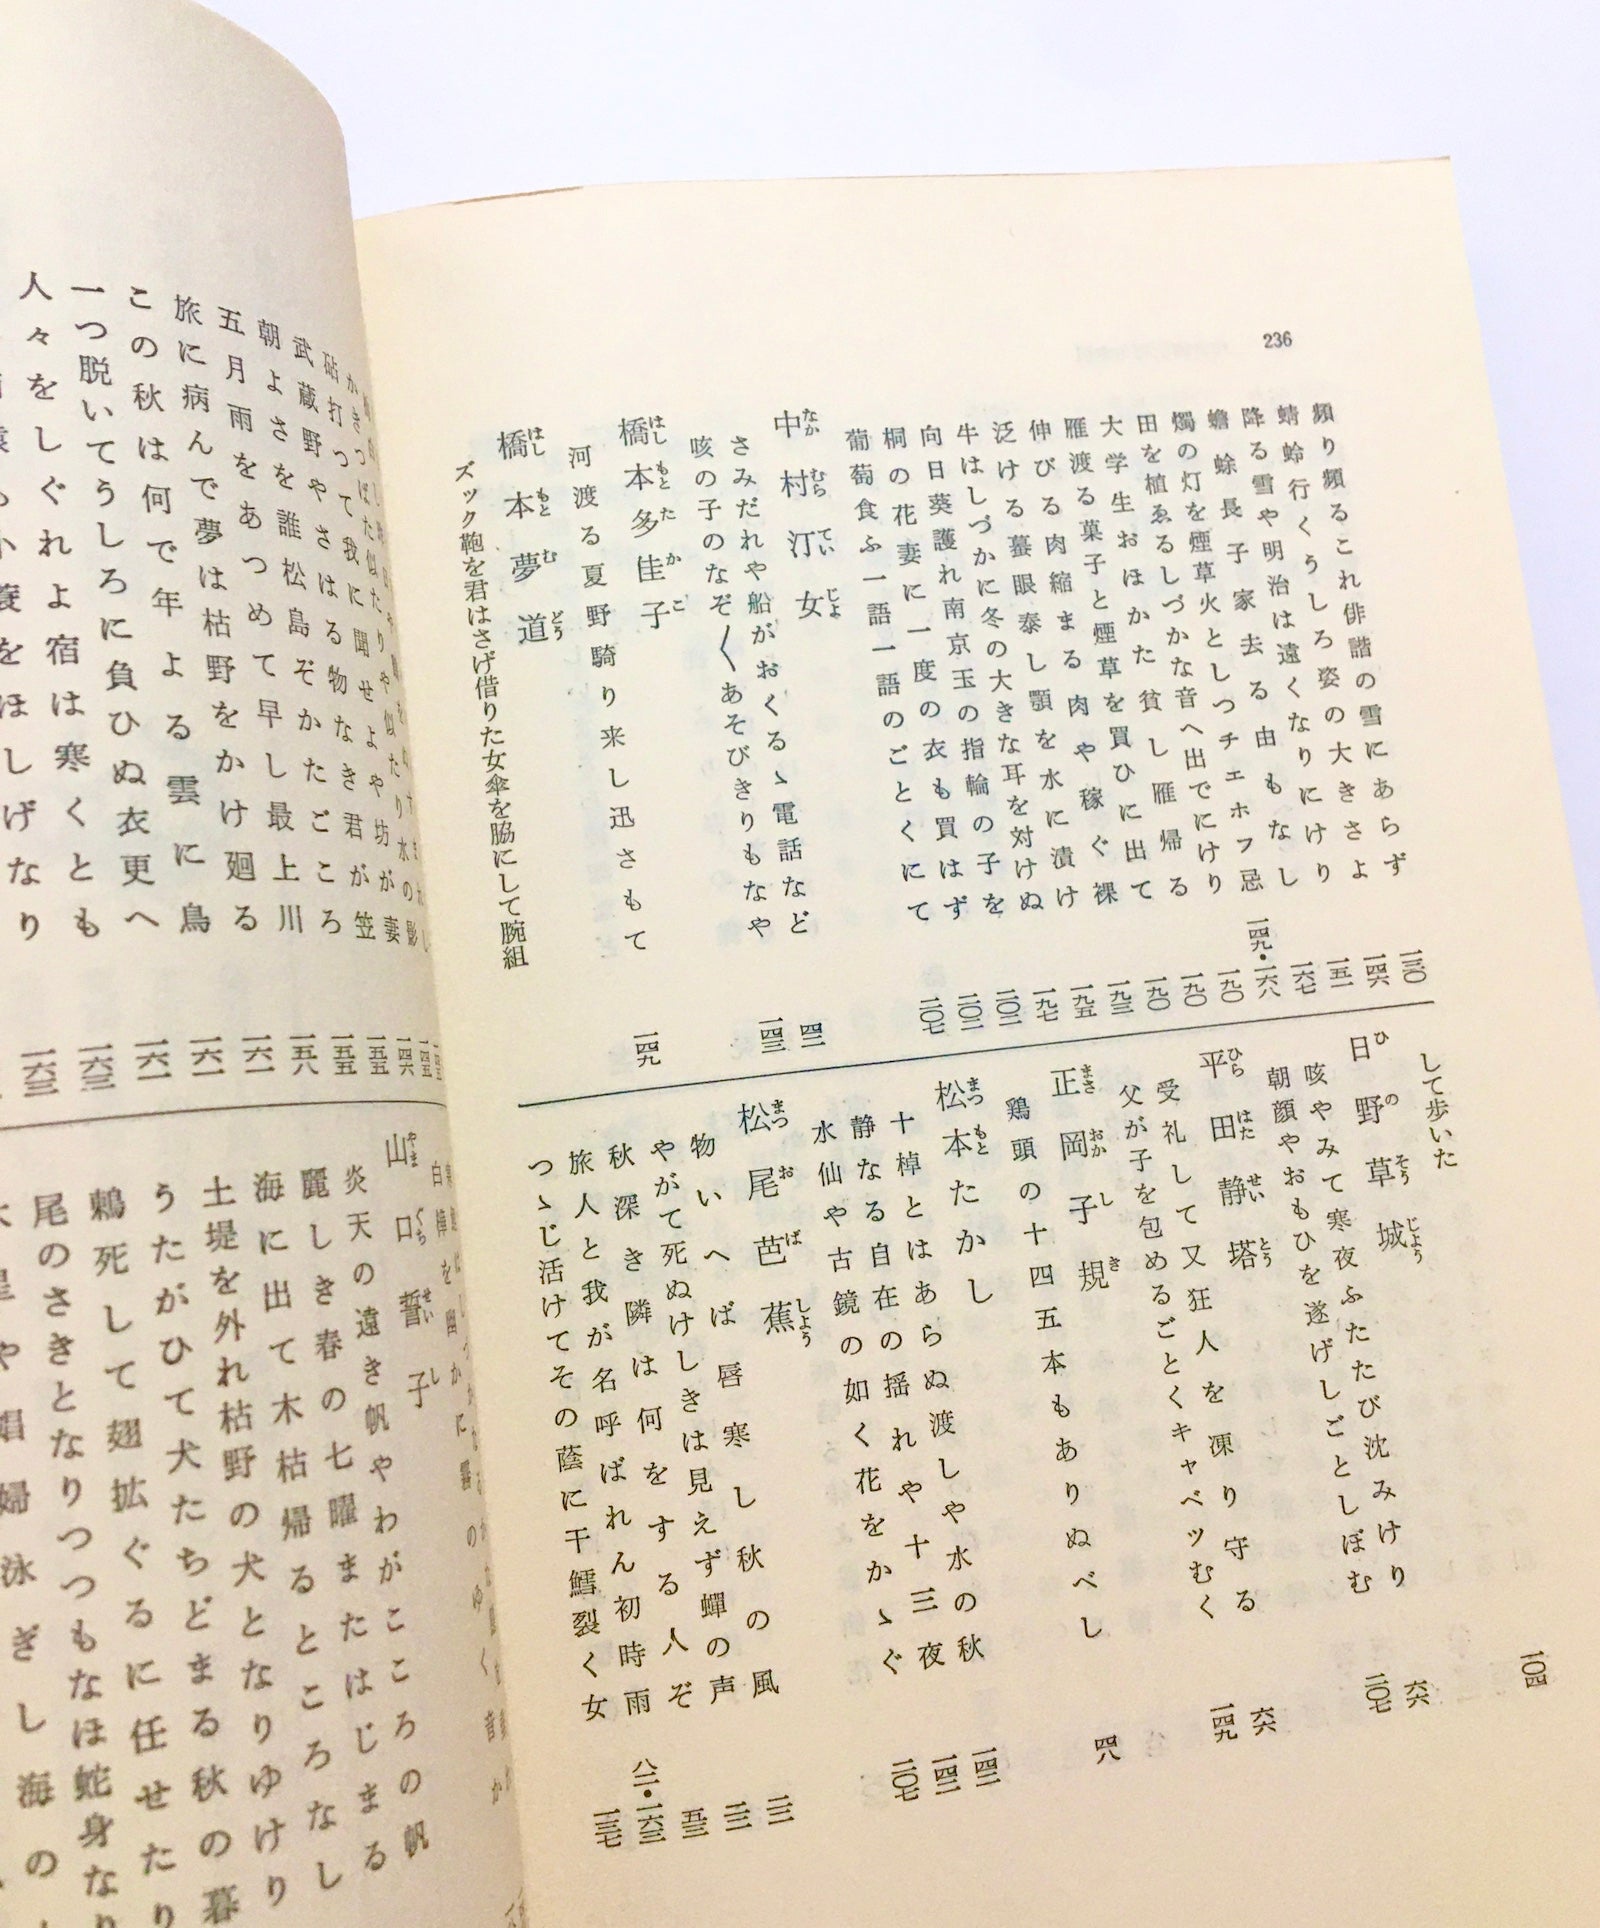 236
頻り頻るこれ俳諧の雪にあらず 一三〇
蜻蛉行くうしろ姿の大きさよ 一四六
降る雪や明治は遠くなりにけり 一五一
蟾蜍長子家去る由もなし 一六七
燭の灯を煙草火としつチェホフ忌 一四九・一六八
田を植ゑるしづかな音へ出でにけり 一九〇
大学生おほかた貧し雁帰る 一九〇
雁渡る菓子と煙草を買ひに出て 一九〇
伸びる肉縮まる肉や稼ぐ裸 一九三
泛ける蟇眼泰し顎を水に漬け 一九五
牛はしづかに冬の大きな耳を対けぬ 一九七
向日葵護れ南京玉の指輪の子を
桐の花妻に一度の衣も買はず
葡萄食ふ一語一語のごとくにて 一〇七
中村汀女
なか むら てい じよ
さみだれや船がおくるゝ電話など
咳の子のなぞ〱あそびきりもなや
橋本多佳子
はし もと た か こ
河渡る夏野騎り来し迅さもて 一四九
橋本夢道
はし もと む どう
ズック鞄を君はさげ借りた女傘を脇にして腕組
して歩いた 一〇四
日野草城
ひ の そう じよう
咳やみて寒夜ふたたび沈みけり 六六
朝顔やおもひを遂げしごとしぼむ 一〇七
平田静塔
ひら はた せい とう
受礼して又狂人を凍り守る 六六
父が子を包めるごとくキャベツむく 一四九
正岡子規
まさ おか し き
鶏頭の十四五本もありぬべし 四八
松本たかし
まつ もと
十棹とはあらぬ渡しや水の秋
静なる自在の揺れや十三夜
水仙や古鏡の如く花をかゝぐ 一〇七
松尾芭蕉
まつ お ば しよう
物いへば唇寒し秋の風
やがて死ぬけしきは見えず蟬の声
秋深き隣は何をする人ぞ 五三
旅人と我が名呼ばれん初時雨
つゝじ活けてその蔭に干鱈裂く女 一三七
砧打つて我に聞せよや坊が妻
武蔵野やさはる物なき君が笠
朝よさを誰松島ぞかたごころ
五月雨をあつめて早し最上川 一五八
旅に病んで夢は枯野をかけ廻る
この秋は何で年よる雲に鳥
一つ脱いてうしろに負ひぬ衣更へ 一六三
人々をしぐれよ宿は寒くとも 一六三
小蓑をほしげなり
山口誓子
やま ぐち せい し
炎天の遠き帆やわがこころの帆
麗しき春の七曜またはじまる
海に出て木枯帰るところなし
土堤を外れ枯野の犬となりゆけり
うたがひて犬たちどまる秋の暮
鵜死して翅拡ぐるに任せたり
尾のさきとなりつつもなほ蛇身なり
娼婦泳ぎし海の